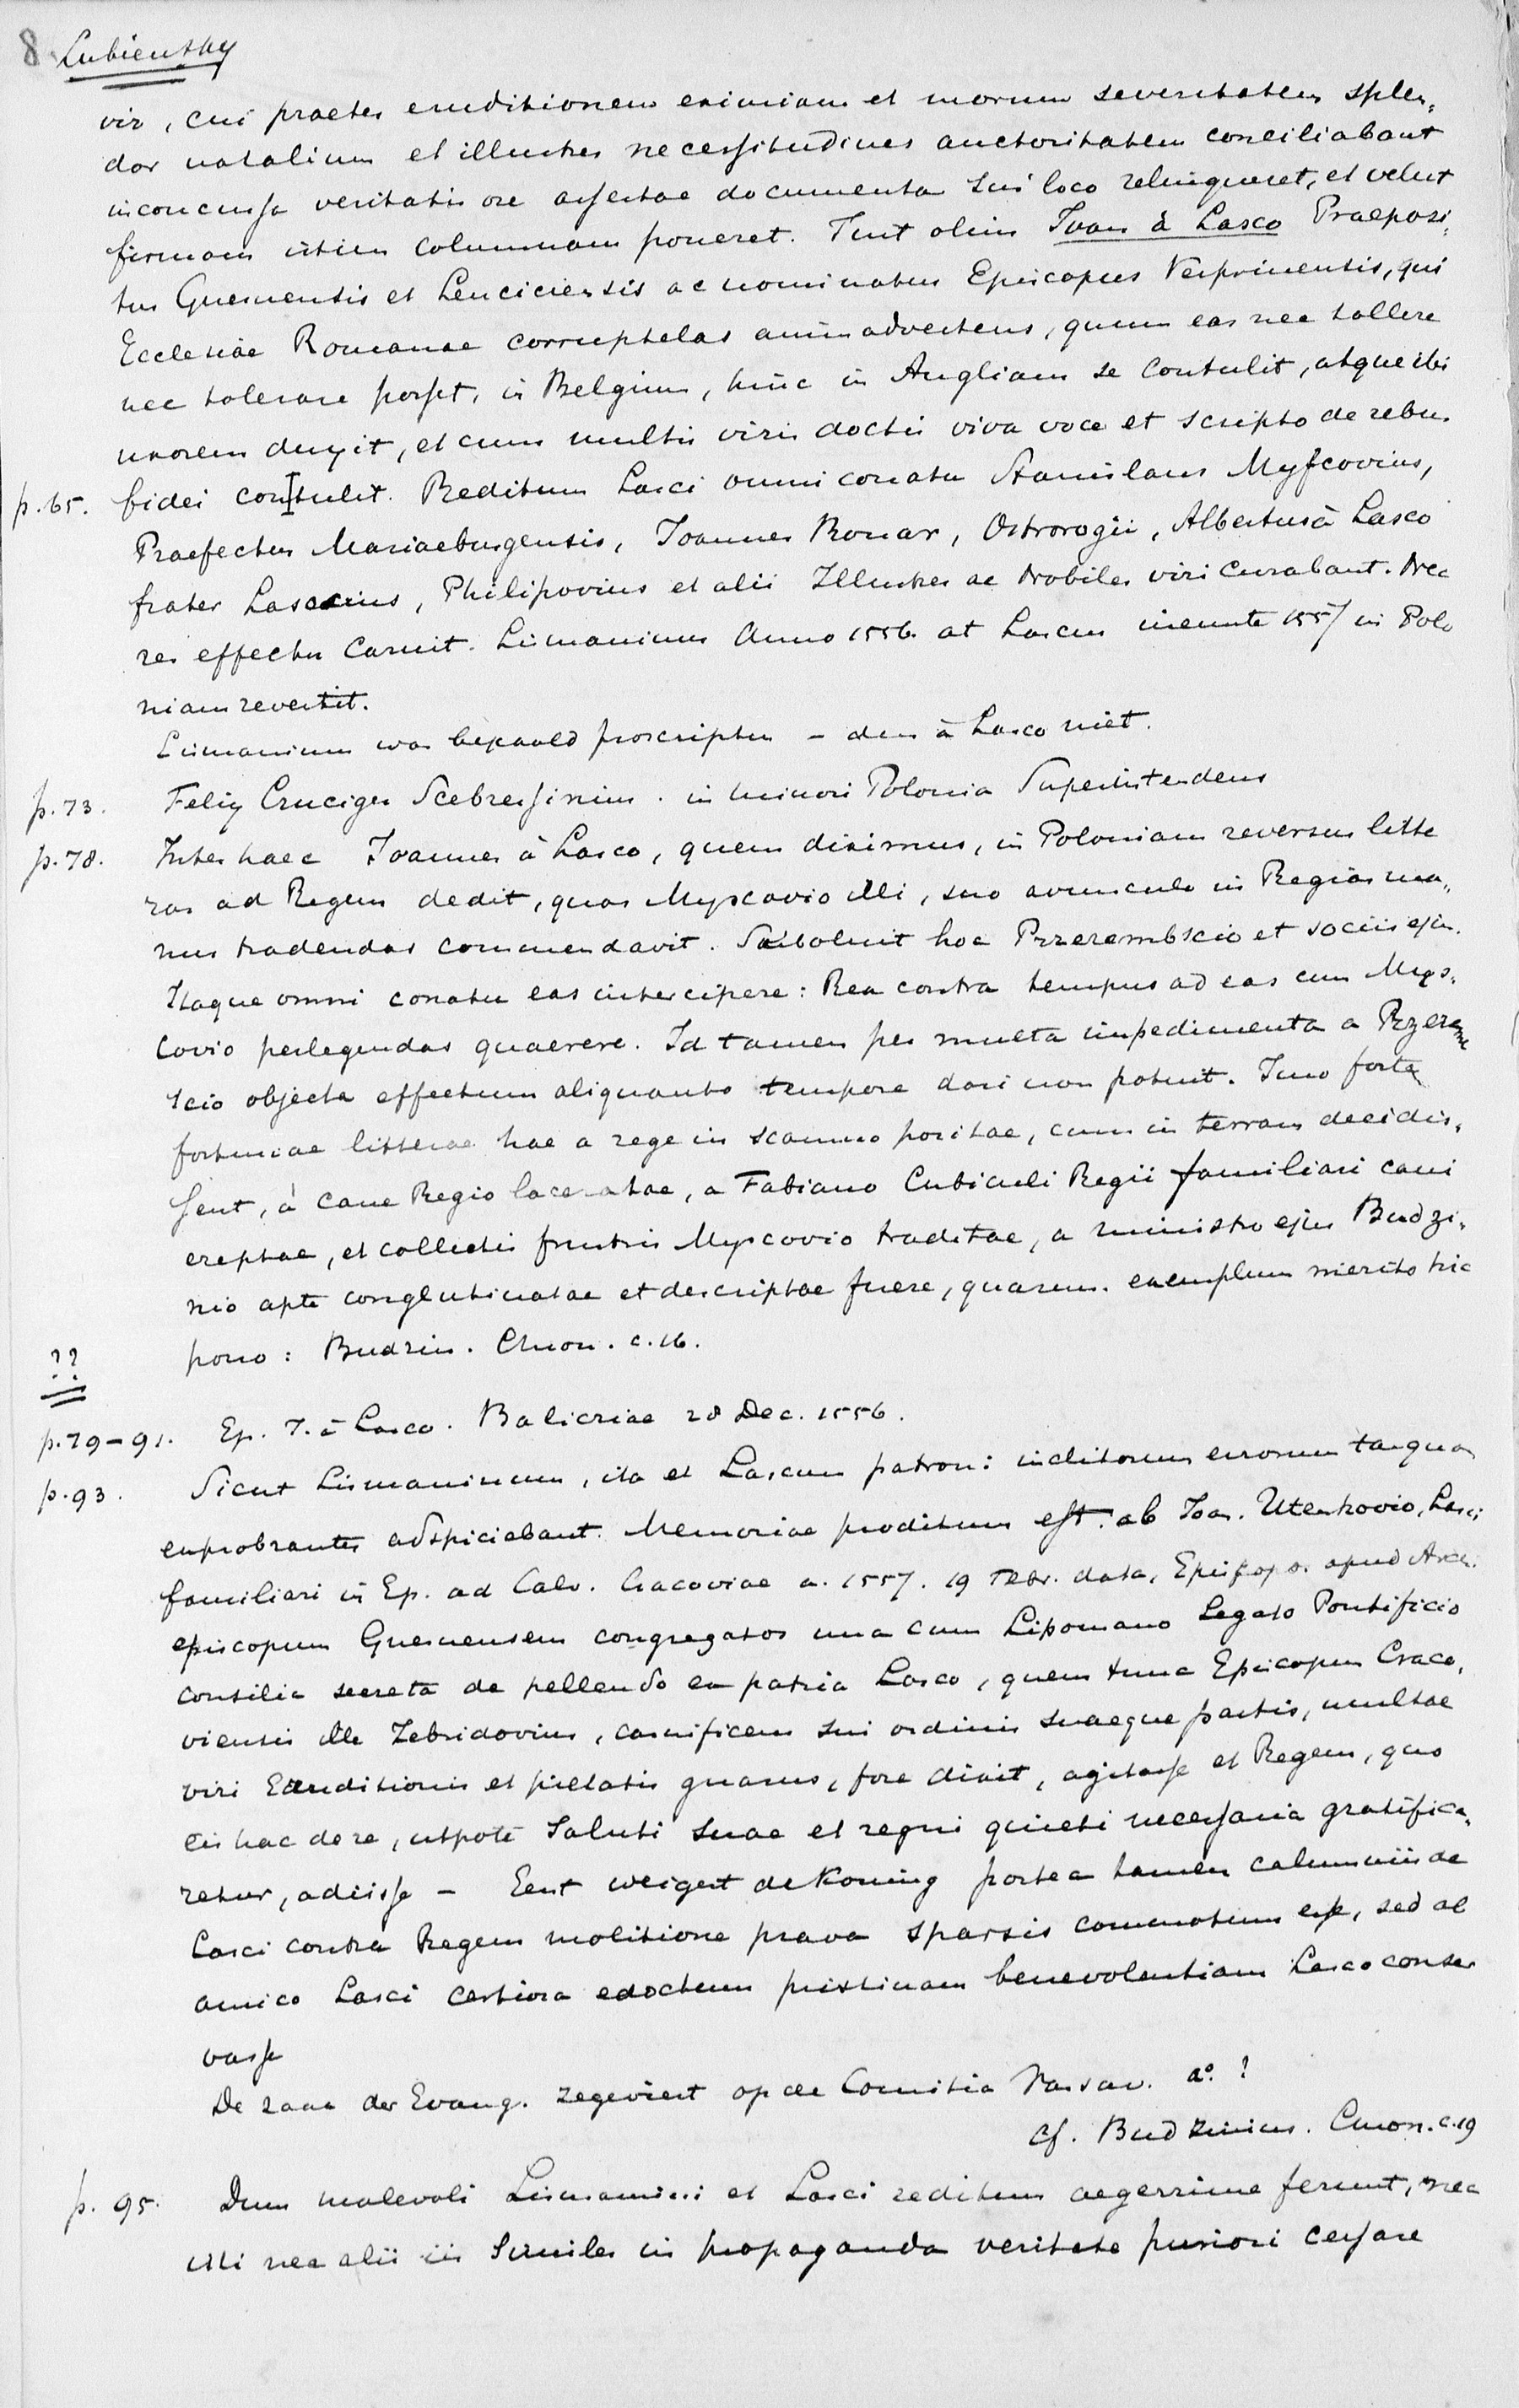 8 Lubiensky
vir, cui praeter eruditionem eximiam et morum severitatem splen„
dor natalium et illustres necessitudines auctoritatem conciliabant
inconcussa veritatis ore assertae documenta sui loco relinqueret, et velut
firmam istim columnam poneret. Fuit olim Ioan à Lasco Praeposi„
tus Gnesnensis et Lenciciensis ac nominatus Episcopus Vesprinensis, qui
Ecclesiae Romanae corruptelas animadvertens, quum eas nec tollere
nec tolerare posset, in Belgium, hinc in Angliam se contulit, atque ibi
uxorem duxit, et cum multis viris doctis viva voce et scripto de rebus
p. 65. fidei contulit. Reditum Lasci omni conatu Stanislaus Myscovius,
Praefectus Mariaeburgensis, Ioannes Bonar, Ostrorogii, Albertus à Lasco
frater Lascius, Philipovius et alii Illustres ac Nobiles viri curabant. Nec
res effectu caruit. Lismaninus Anno 1556. at Lascus ineunte 1557 in Polo
niam revertit.
Lismaninus was bepaald proscriptus – dus à Lasco niet.
p. 73. Felix Cruciger Scebressinius. in minori Polonia Superintendens
p. 78. Inter haec Joannes à Lasco, quem diximus, in Poloniam reversus litte
ras ad Regem dedit, quas Myscovio illi, suo avunculo in Regias ma„
nus tradendas commendavit. Suboluit hoc Przerembscio et sociis ejus.
Itaque omni conatu eas intercipere: Rex contra tempus ad eas cum Mys„
covio perlegendas quaerere. Id tamen per multa impedimenta a Przerem
scio objecta effectum aliquanto tempore dari non potuit. Imo forte
fortunae litterae hae a rege in scamno positae, cum in terram decidis„
sent, à cane Regio laceratae, a Fabiano Cubiculi Regii familiari cani
ereptae, et collectis frustris Myscovio traditae, a ministro ejus Budzi„
nio apte conglutinatae et descriptae fuere, quarum exemplum merito hic
?? pono: Budzin. Chron. c. 16.
p. 79–91. Ep. J. à Lasco. Balicziae 28 Dec. 1556.
p. 93. Sicut Lismaninum, ita et Lascum patroni inclitorum errorum tanquam
exprobrantes adspiciebant. Memoriae proditum est. ab Ioa. Utenhovio, Lasci
familiari in Ep. ad Calv. Cracoviae a. 1557. 19 Febr. data, Episcopos apud Archi.
episcopum Gnesnensem congregatos una cum Lipomano Legato Pontificio
consilia secreta de pellendo ex patria Lasco, quem tunc Episcopus Craco„
viensis ille Zebridovius, carnificem sui ordinis suaeque partis, multae
viri Eruditionis et pietatis gnarus, fore dixit, agitasse et Regem, quo
eis hac de re, utpote saluti suae et regni quieti necessaria gratifica„
retur, adiisse – Eerst weigert de Koning postea tamen calumniis de
Lasci contra Regem molitione prava sparsis commotum esse, sed ab
amico Lasci certiora edoctum pristinam benevolentiam Lasco conser
vasse
De zaak der Evang. zegeviert op de Comitia Varsav. a°. ?
cf. Budzinius. Chron. c. 19
p. 95. Dum malevoli Lismanini et Lasci reditum aegerrime ferunt, nec
isti nec alii iis similes in propaganda veritate puriori cessare